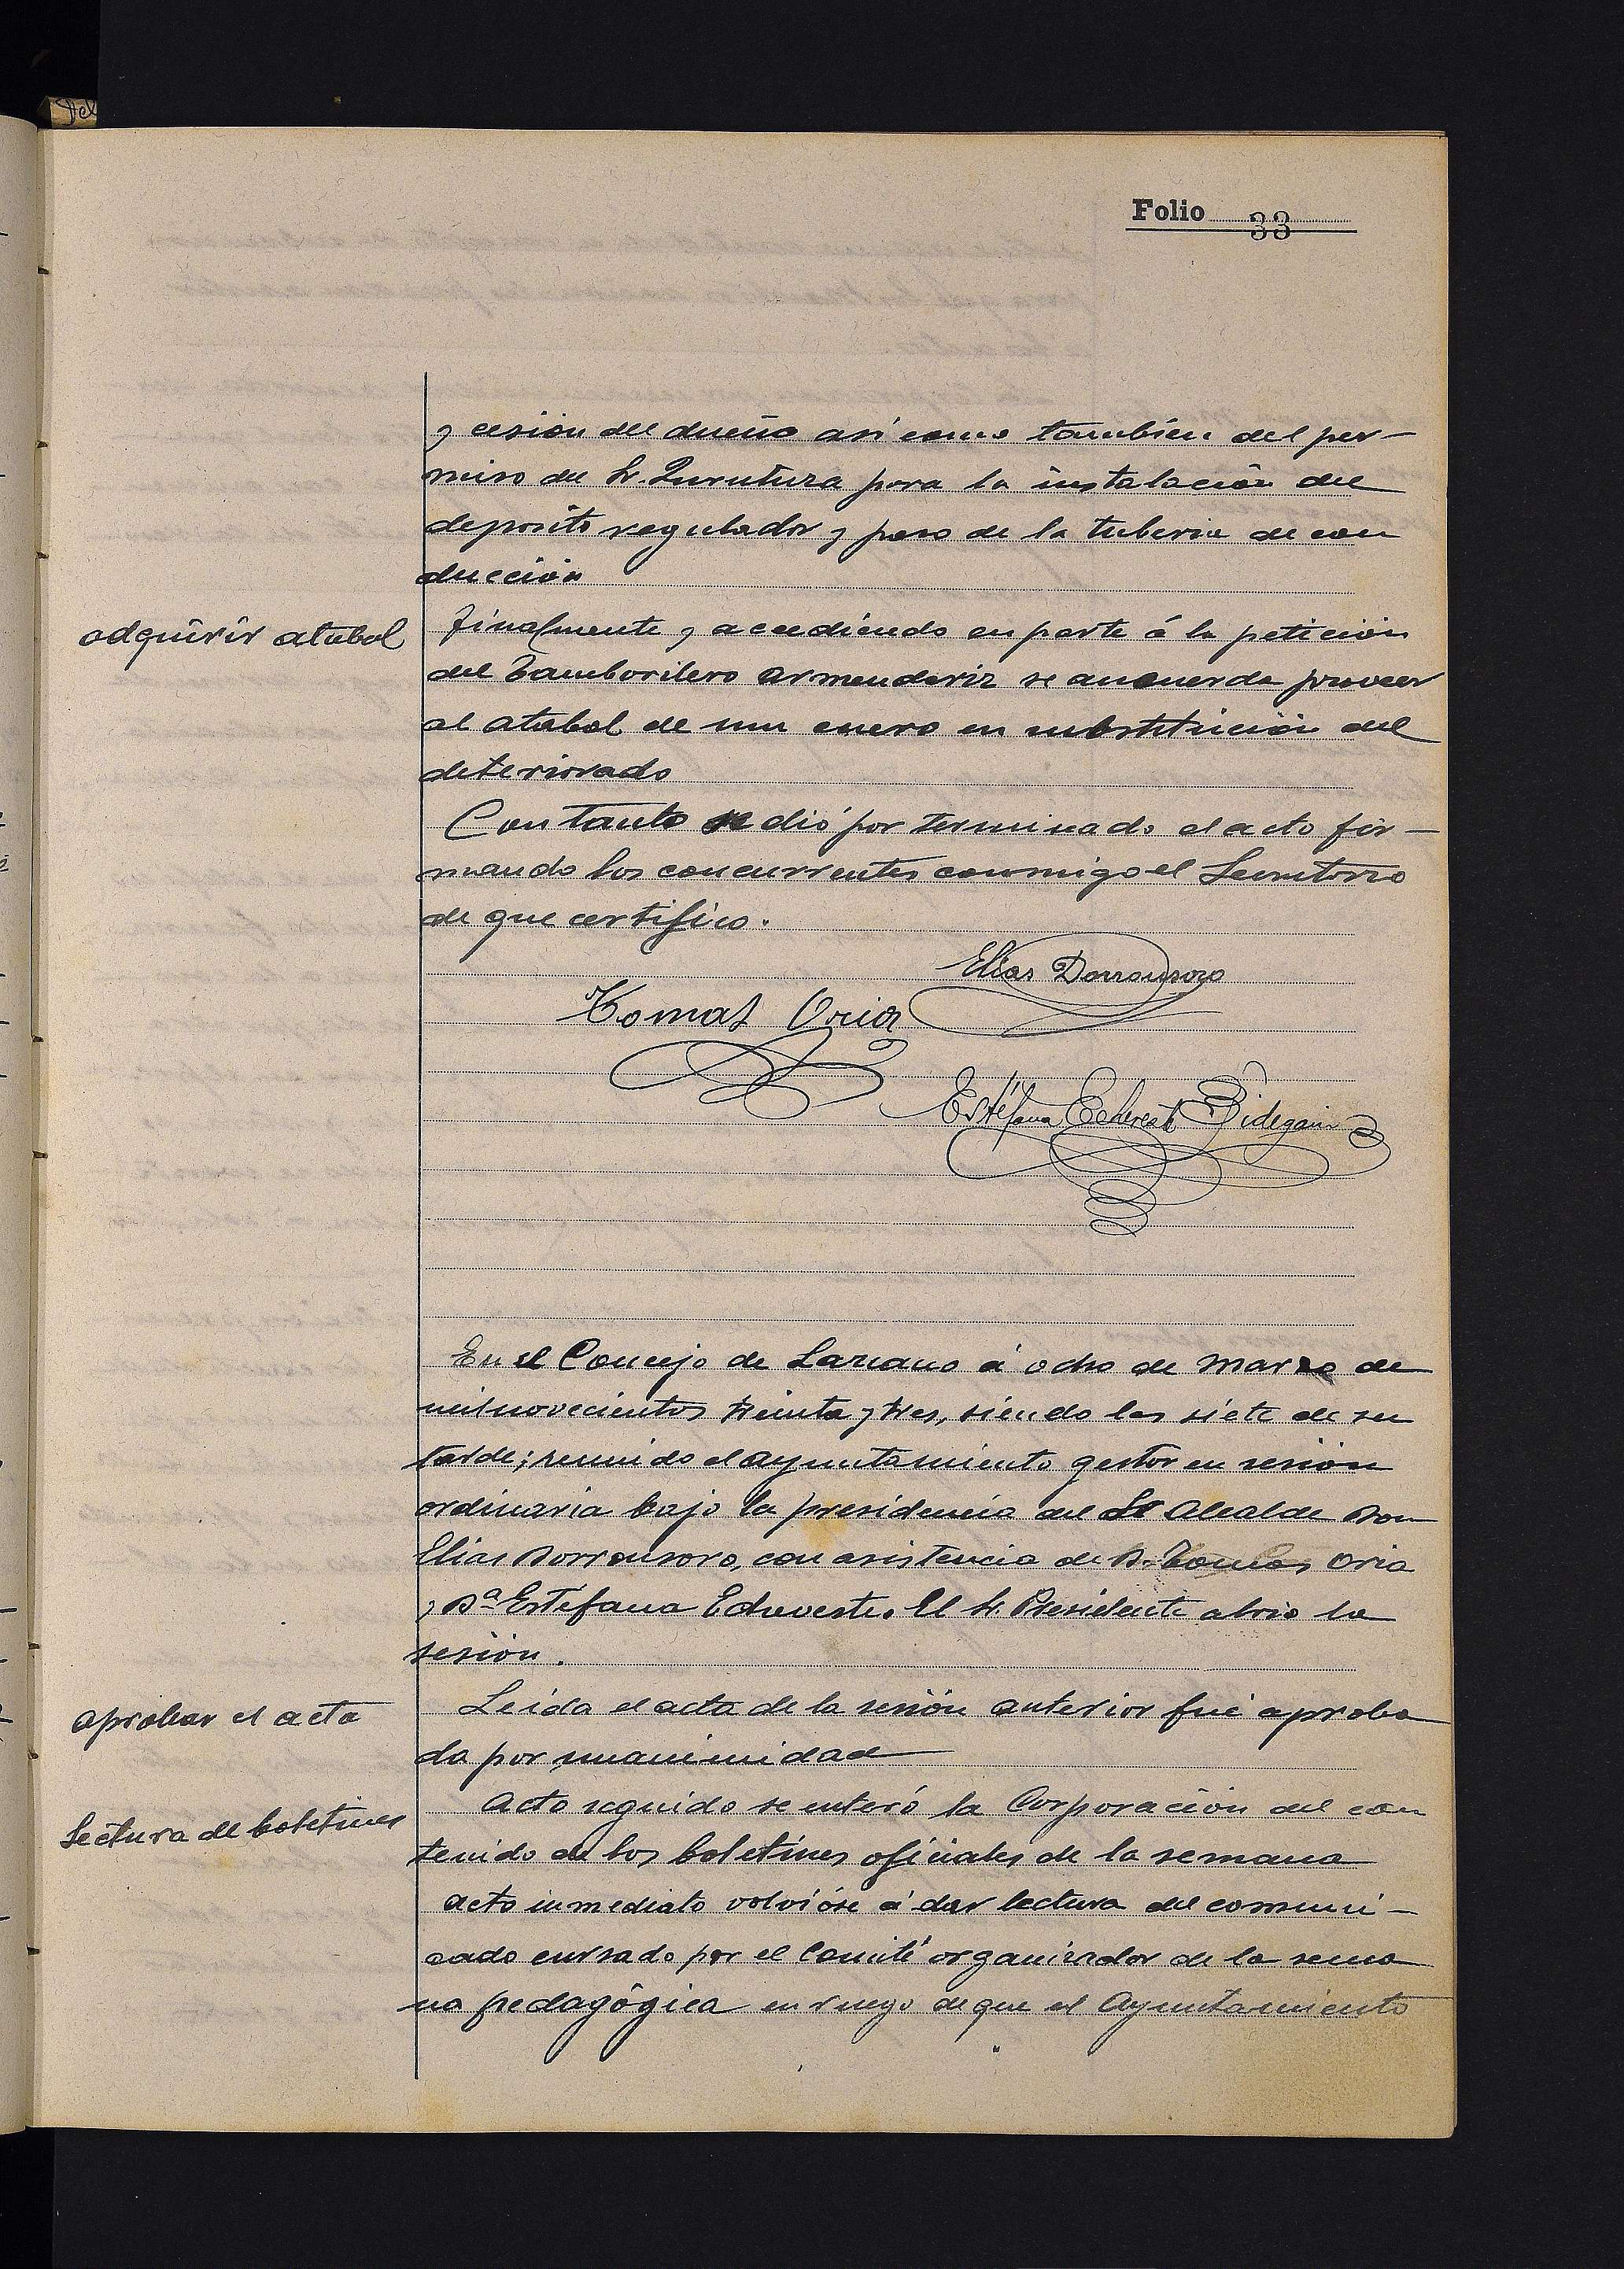 Folio 33
y cesión del dueño así como también del per-
miso del Sr. Zurutuza para la instalación del
deposito regulador y paso de la tuberia de con
ducción
adquirir atabal
finalmente y accediendo en parte á la petición
del Tamborilero Armendariz se ancuerda proveer
al atabal de un cuero en substitución del
deteriorado
Con tanto se dió por terminado el acto fir-
mando los concurrentes conmigo el Secretario
de que certifico.
Elias Dorronsoro
Tomas Oria
Estéfana Echeveste Bidegain
En el Concejo de Lazcano á ocho de Marzo de
mil novecientos treinta y tres, siendo las siete de su
tarde; reunido el Ayuntamiento gestor en sesión
ordinaria bajo la presidencia del Sr Alcalde Don
Elias Dorronsoro, con asistencia de D. Tomas Oria
y Dª Estéfana Echeveste. El Sr. Presidente abrió la
sesión.
aprobar el acta
Leida el acta de la sesión anterior fué aproba
da por unanimidad
Lectura de boletines
Acto seguido se enteró la Corporación del con
tenido de los boletines oficiales de la semana
acto inmediato volvióse á dar lectura del comuni-
cado cursado por el Comité organizador de la sema
na pedagógica en ruego de que el Ayuntamiento